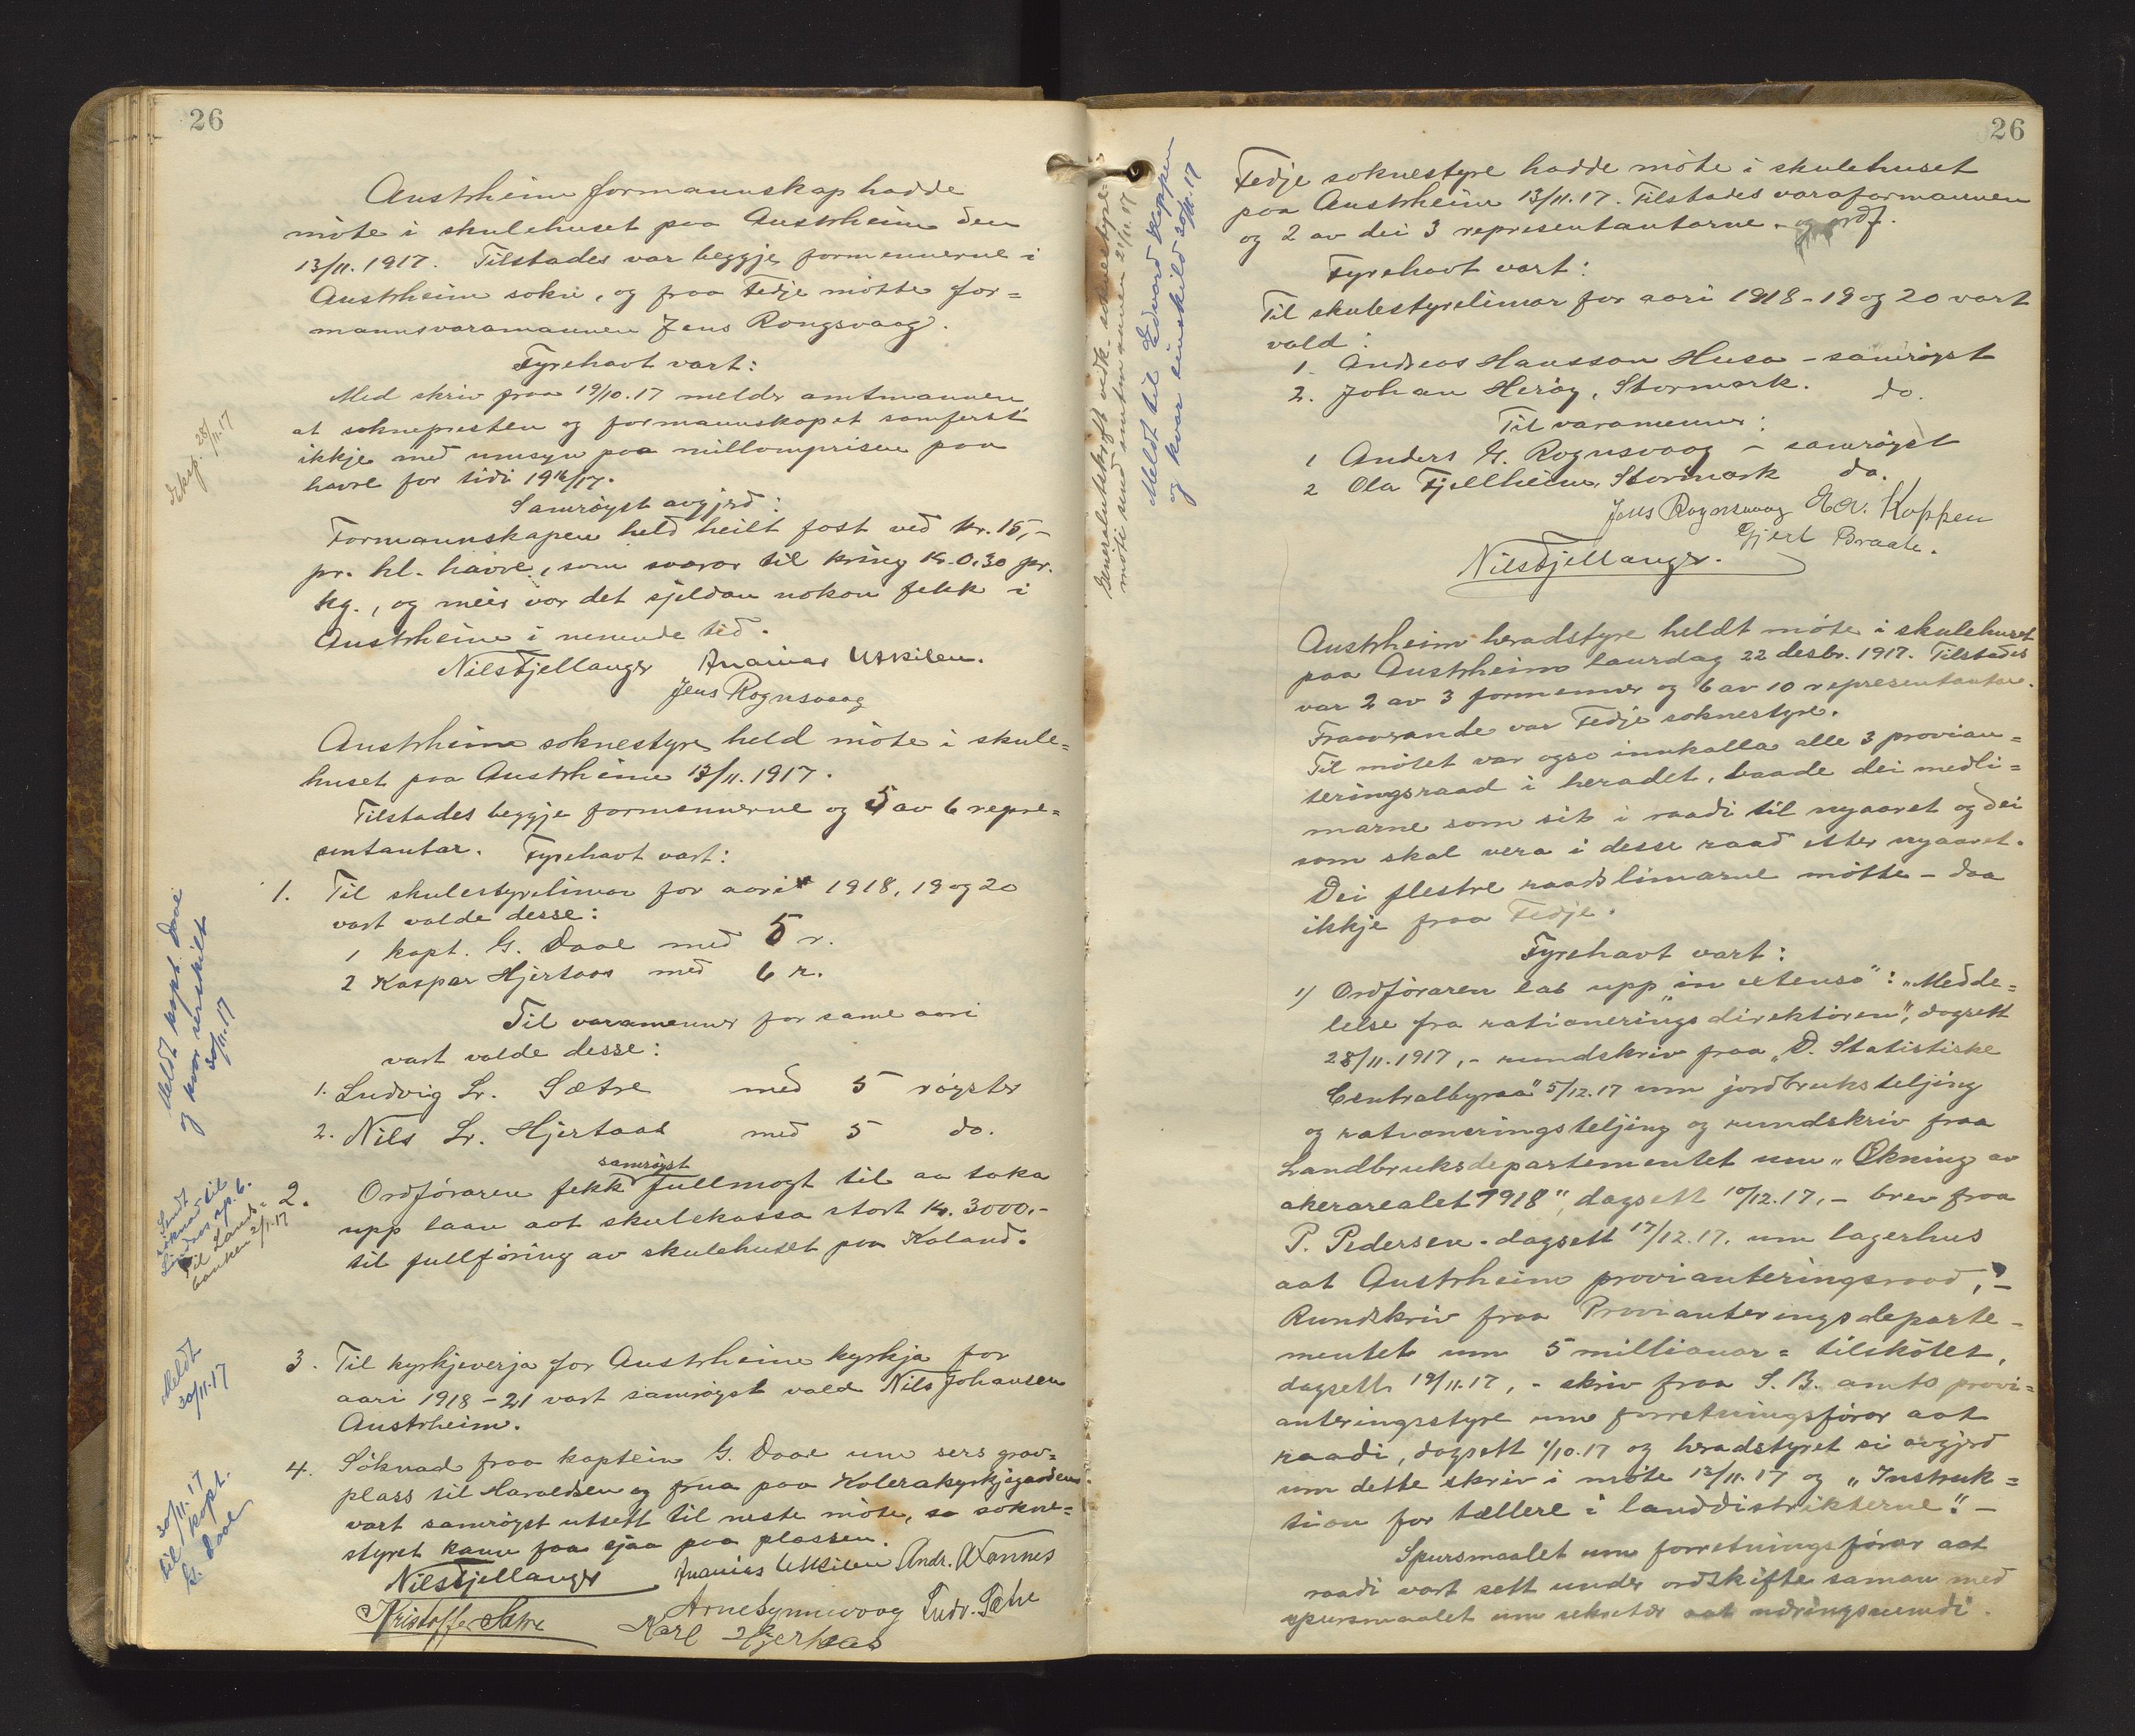 26
Austrheim formannskap hadde
møte i skulehuset paa Austrheim den
13/11. 1917. Tilstades var beggje formennerne i
Austrheim sokn, og fraa Fedje møtte for=
mannsvaramannen Jens Rongsvaag.
Fyrehavt vart:
Med skriv fraa 19/10.17 melde amtmannen
at soknepresten og formannskapet samferst
ikkje med umsyn paa millomprisen paa
havre for tidi 1916/17.
Samrøyst avgjerd:
Formannskapen held heilt fast ved kr. 15,-
pr. hl. havre, som svarar til kring kr. 0,30 pr.
kg., og meir var det sjeldan nokon fekk i
Austrheim i nemnde tid.
Nils Fjellanger Ananias Utkilen.
Jens Rognsvaag
Austrheim soknestyre held møte i skule=
huset paa Austrheim 13/11. 1917.
Tilstades beggje formennerne og 5 av 6 repre=
sentantar. Fyrehavt vart:
1. Til skulestyrelimar for aari 1918, 19 og 20
vart valde desse:
1 kapt. G. Daae med 5 r.
2 Kaspar Hjertaas med 6 r.
Til varamenner for same aari
vart valde desse:
1. Ludvig Lr. Sætre med 5 røyster
2. Nils Lr. Hjertaas med 5 do.
samrøyst
2. Ordføraren fekk fullmagt til aa taka
upp laan aat skulekassa stort Kr. 3000,-
til fullføring av skulehuset paa Kaland.
3. Til kyrkjeverja for Austrheim kyrkja for
aari 1918-21 vart samrøyst vald Nils Johansen
Austrheim.
4. Søknad fraa kaptein G. Daae um sers grav=
plass til Haraldsen og frua paa Kolerakyrkjegarden
vart samrøyst utsett til neste møte, so sokne=
styret kann faa sjaa paa plassen.
Nils Fjellanger Ananias Utkilen Andr. Wannes
Kristoffer Sætre Arne Synnevaag Ludv. Sætre
Karl Hjertaas
28/11.17
Meldt kapt. Daae
og kvar serskilt
30/11.17
Sendt
søknad til
Lindaas sp.b.
Til Lands=
banken 2/1.17
Meldt
30/11.17
30/11.17
til kapt.
G. Daae
26
Generalutskrift vedk. soknestyre=
møti send amtmannen 21/11.17
Meldt til Edvard Koppen
og kvar einskild 30/11.17
Fedje soknestyre hadde møte i skulehuset
paa Austrheim 13/11.17. Tilstades varaformannen
og 2 av dei 3 representantarne - og ordf.
Fyrehavt vart:
Til skulestyrelimar for aari 1918-19 og 20 vart
vald:
1. Andreas Hansson Husa - samrøyst
2. Johan Herøy, Stormark. do.
Til varamenner:
1 Anders G. Rognsvaag - samrøyst
2 Ola Fjellheim, Stormark do.
Jens Rognsvaag Edv. Koppen
Gjert Braate.
Nils Fjellanger.
Austrheim heradstyre heldt møte i skulehuset
paa Austrheim laurdag 22 desbr. 1917. Tilstades
var 2 av 3 formenner og 6 av 10 representantar.
Fraverande var Fedje soknestyre.
Til møtet var ogso innkalla alle 3 provian=
teringsraad i heradet, baade dei medli=
marne som sit i raadi til nyaaret og dei
som skal vera i desse raad etter nyaaret.
Dei flestre raadslimarne møtte - daa
ikkje fraa Fedje.
Fyrehavt vart:
1) Ordføraren las upp "in extenso": "Medde=
lelse fra rationeringsdirektøren", dagsett
28/11.1917, - rundskriv fraa "D. Statistiske
Centralbyraa" 5/12.17 um jordbruksteljing
og rationeringsteljing og rundskriv fraa
Landbruksdepartementet um "Økning av
akerarealet 1918", dagsett 10/12.17, - brev fraa
P. Pedersen - dagsett 17/12.17. um lagerhus
aat Austrheim provianteringsraad, -
Rundskriv fraa Provianteringsdeparte-
mentet um 5 millionar = tilskotet,
dagsett 19/11.17, - skriv fraa S. B. amts provi=
anteringsstyre um forretningsførar aat
raadi, dagsett 1/10.17 og heradstyret si avgjerd
um dette skriv i møte 13/11.17 og "Instruk=
tion for tællere i landdistrikterne". -
Spursmaalet um forretningsførar aat
raadi vart sett under ordskifte saman med
spursmaalet um sekretær aat næringsnemdi.